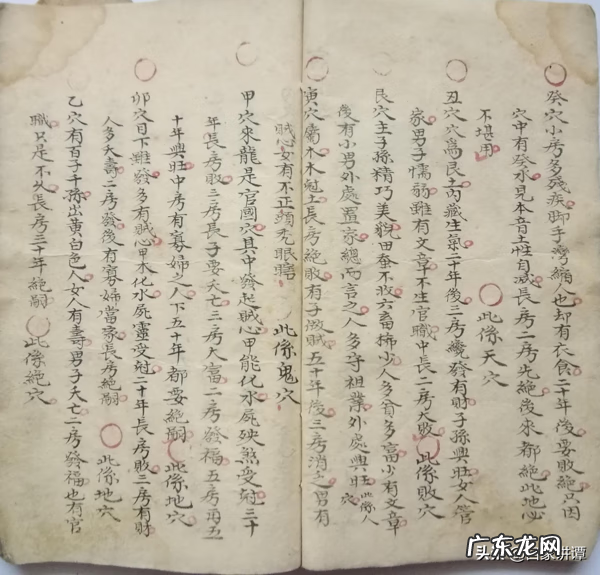 癸穴小房多殘疾脚手灣縮人也却有衣食二十年後要敗絕只因
穴中有癸水見本音土性自滅長房二房先絕後來都絕此地必
不堪用 此係天穴
丑穴穴為艮土內藏生氣二十年後三房纔發有財子孫興旺女人管
家男子懦弱雖有文章不生官職中長二房大敗 此係敗穴
艮穴主子孫精巧美貌田蚕不收六畜稀少人多貧多富少有文章
後有小男外處置家總而言之人多守祖業外處興旺 此係人穴
寅穴屬木木尅土長房絕敗有子敗賊五十年後三房消乏男有
賊心女有不正頭禿眼瞎 此係鬼穴
甲穴來龍是官國穴其中發起賊心甲能化水屍殃煞受射三十
年長房敗三房長子要夭亡三房大富二房發福五房再五
十年興旺中房有寡婦之人下五十年都要絕嗣 此係地穴
卯穴目下雖發多有賊心甲木化水屍靈受射二十年長房敗三房有財
人多夭壽二房發後有寡婦當家長房絕嗣 此係地穴
乙穴有百子千孫出黃白色人女人有壽男子夭亡二房發福也有官
職只是不久長房三十年絕嗣 此係絕穴
头条
@百家讲谭
广东龙网